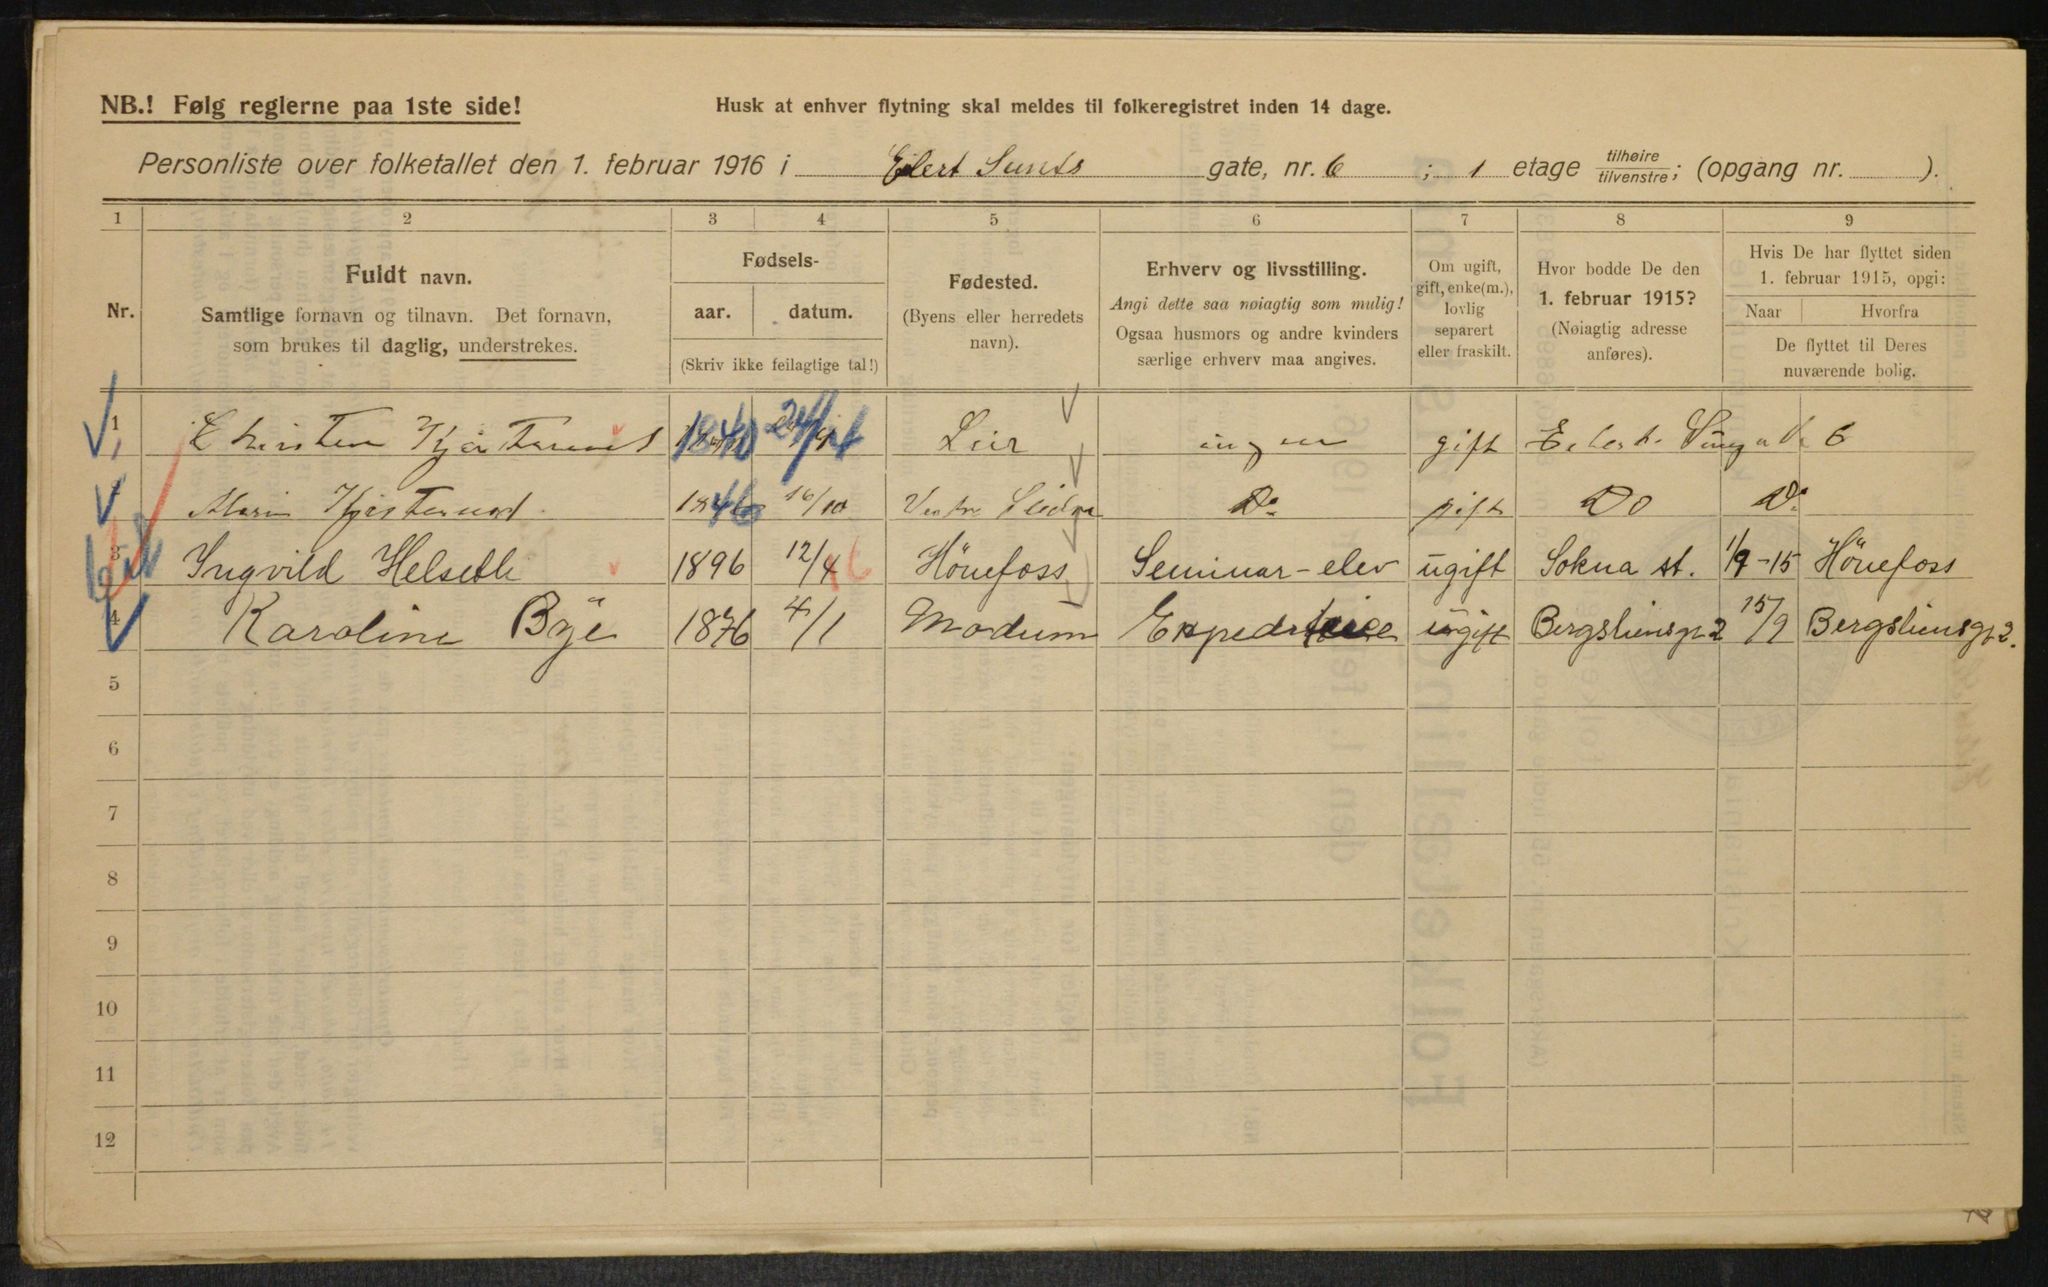 NB.! Følg reglerne paa 1ste side!
Husk at enhver flytning skal meldes til folkeregistret inden 14 dage.
Personliste over folketallet den 1. februar 1916 i Eilert Sunts gate, nr. 6 ; 1 etage tilhøire tilvenstre; (opgang nr. ).
1 2 3 4 5 6 7 8 9
Nr.
Fuldt navn.
Samtlige fornavn og tilnavn. Det fornavn,
som brukes til daglig, understrekes.
Fødsels-
aar. datum.
(Skriv ikke feilagtige tal!)
Fødested.
(Byens eller herredets
navn).
Erhverv og livsstilling.
Angi dette saa nøiagtig som mulig!
Ogsaa husmors og andre kvinders
særlige erhverv maa angives.
Om ugift,
gift, enke(m.),
lovlig
separert
eller fraskilt.
Hvor bodde De den
1. februar 1915?
(Nøiagtig adresse
anføres).
Hvis De har flyttet siden
1. februar 1915, opgi:
Naar Hvorfra
De flyttet til Deres
nuværende bolig.
1 1840 24/4 Lier ingen gift 6
1846 16/10 Vestre Slidre Do gift Do Do
3 Ingvild Helseth 1896 12/4 Hönefoss Seminar-elev ugift Sokna st. 1/9-15 Hönefoss
4 Karoline Bye 1876 4/1 Modum Expeditrice ugift Bergsliensgt 2 15/9 Bergsliensgt 2.
5
6
7
8
9
10
11
12